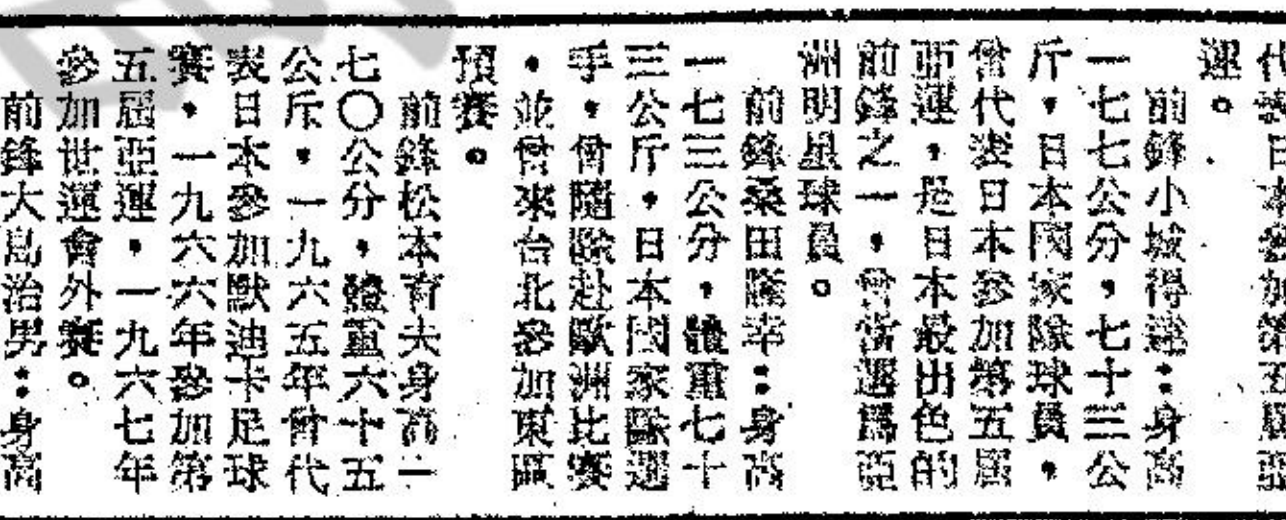 代表日本參加第五屆亞
運。
前鋒小城得達：身高
一七七公分，七十三公
斤，日本國家隊球員，
曾代表日本參加第五屆
亞運，是日本最出色的
前鋒之一，曾當選爲亞
洲明星球員。
前鋒桑田隆幸：身高
一七三公分，體重七十
三公斤，日本國家隊選
手，曾隨隊赴歐洲比賽
，並曾來台北參加東區
預賽。
前鋒松本育夫身高一
七〇公分，體重六十五
公斤，一九六五年曾代
表日本參加默迪卡足球
賽，一九六六年參加第
五屆亞運，一九六七年
參加世運會外賽。
前鋒大島治男：身高